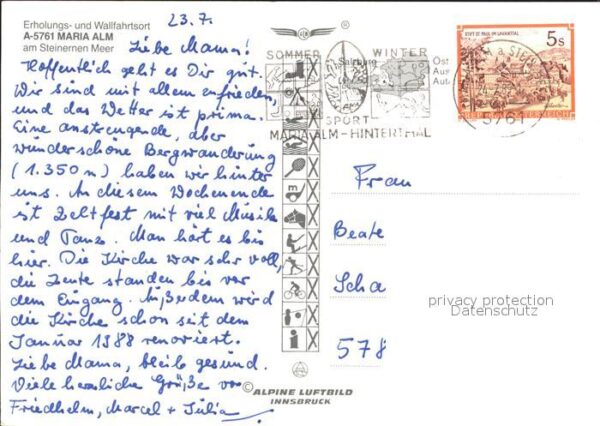 Erholungs- und Wallfahrtsort
A-5761 MARIA ALM
am Steinernen Meer
23.7.
Liebe Mama!
Hoffentlich geht es Dir gut.
Wir sind mit allem zufrieden,
und das Wetter ist prima.
Eine anstrengende, aber
wunderschöne Bergwanderung
(1.350 m) haben wir hinter
uns. An diesem Wochenende
ist Zeltfest mit viel Musik
und Tanz. Man hört es bis
hier. Die Kirche war sehr voll,
die Leute standen bis vor
dem Eingang. Außerdem wird
die Kirche schon seit dem
Januar 1988 renoviert.
Liebe Mama, bleib gesund.
Viele herzliche Grüße von
Friedhelm, Marcel + Julia
SOMMER
WINTER
Salzburg
SPORT
MARIA ALM - HINTERTHAL
Ost
Aus
Aut
STIFT ST. PAUL IM LAVANTTAL
5 S
REPUBLIK ÖSTERREICH
5761
Frau
Beate
Scha
578
privacy protection
Datenschutz
© ALPINE LUFTBILD
INNSBRUCK